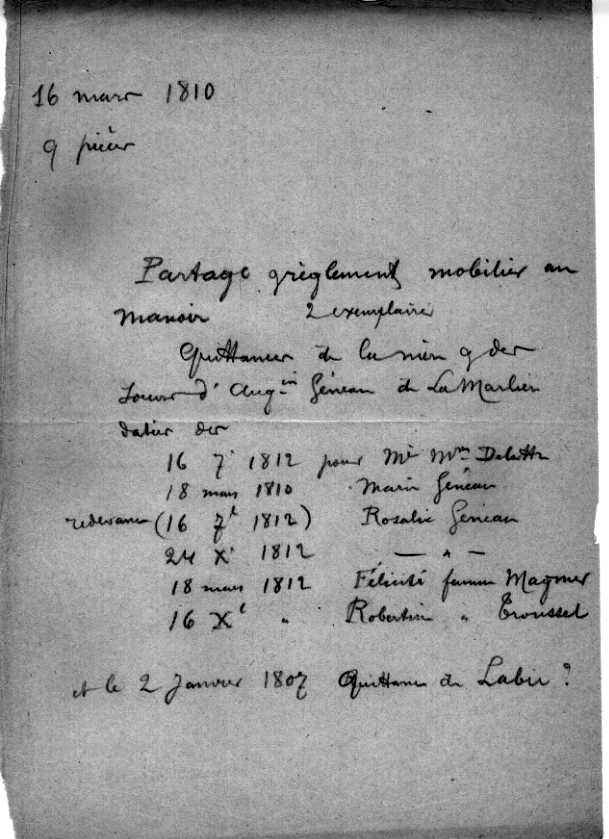 16 mars 1810
9 pièces
Partage règlement mobilier au
manoir 2 exemplaires
Quittances de la 9 des
soeurs d' Aug.in Géneau de La Marlière
datées des
16 7e 1812 pour Me Mme Delattre
18 mars 1810 Marie Géneau
redevance (16 7e 1812) Rosalie Géneau
24 Xe 1812 — " —
18 mars 1812 Félicité femme Magnier
16 Xe " Robertine " Troussel
et le 2 Janvier 1807 Quittance de Labie ?